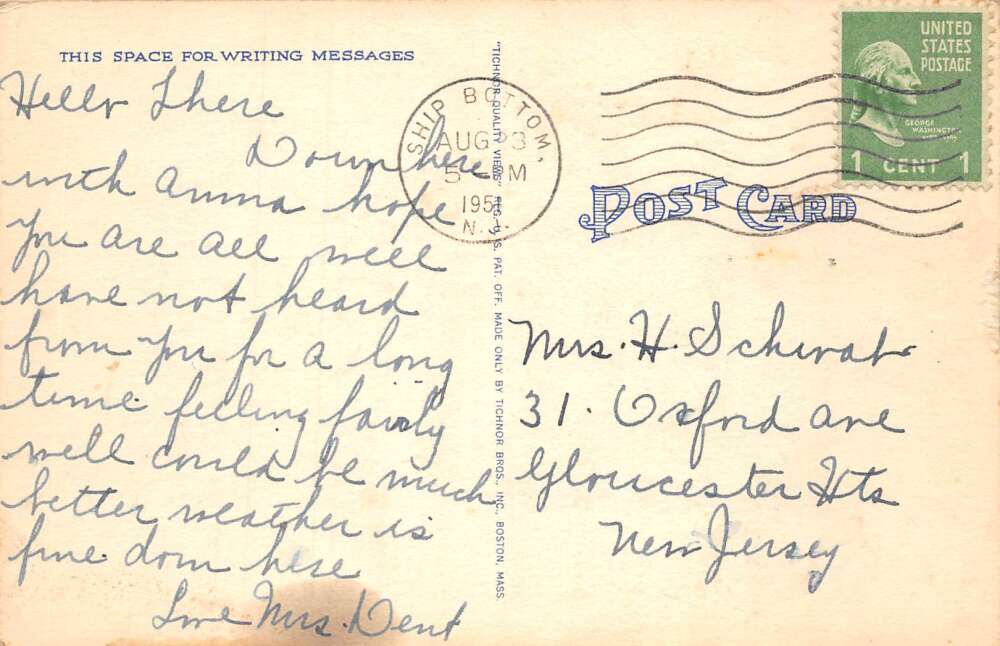 THIS SPACE FOR WRITING MESSAGES
Hello There
Down here
with Anna hope
you are all well
have not heard
from you for a long
time feeling fairly
well could be much
better weather is
fine down here
Love Mrs. Dent
"TICHNOR QUALITY VIEWS" REG. U. S. PAT. OFF. MADE ONLY BY TICHNOR BROS., INC., BOSTON, MASS.
SHIP BOTTOM,
AUG 23
5 M
195
N.J.
UNITED
STATES
POSTAGE
GEORGE
WASHINGTON
1 CENT 1
POST CARD
Mrs. H. Schwab
31. Oxford Ave
Gloucester Hts
New Jersey